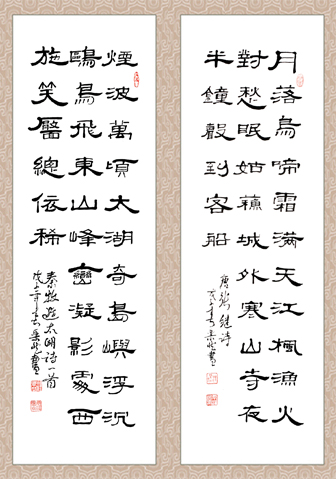 月落烏啼霜滿天江楓漁火
對愁眠姑蘇城外寒山寺夜
半鐘聲到客船
唐張繼詩
煙波萬頃太湖奇島嶼浮沉
鷗鳥飛東山峰巒凝影處西
施笑靨總依稀
秦牧遊太湖詩一首